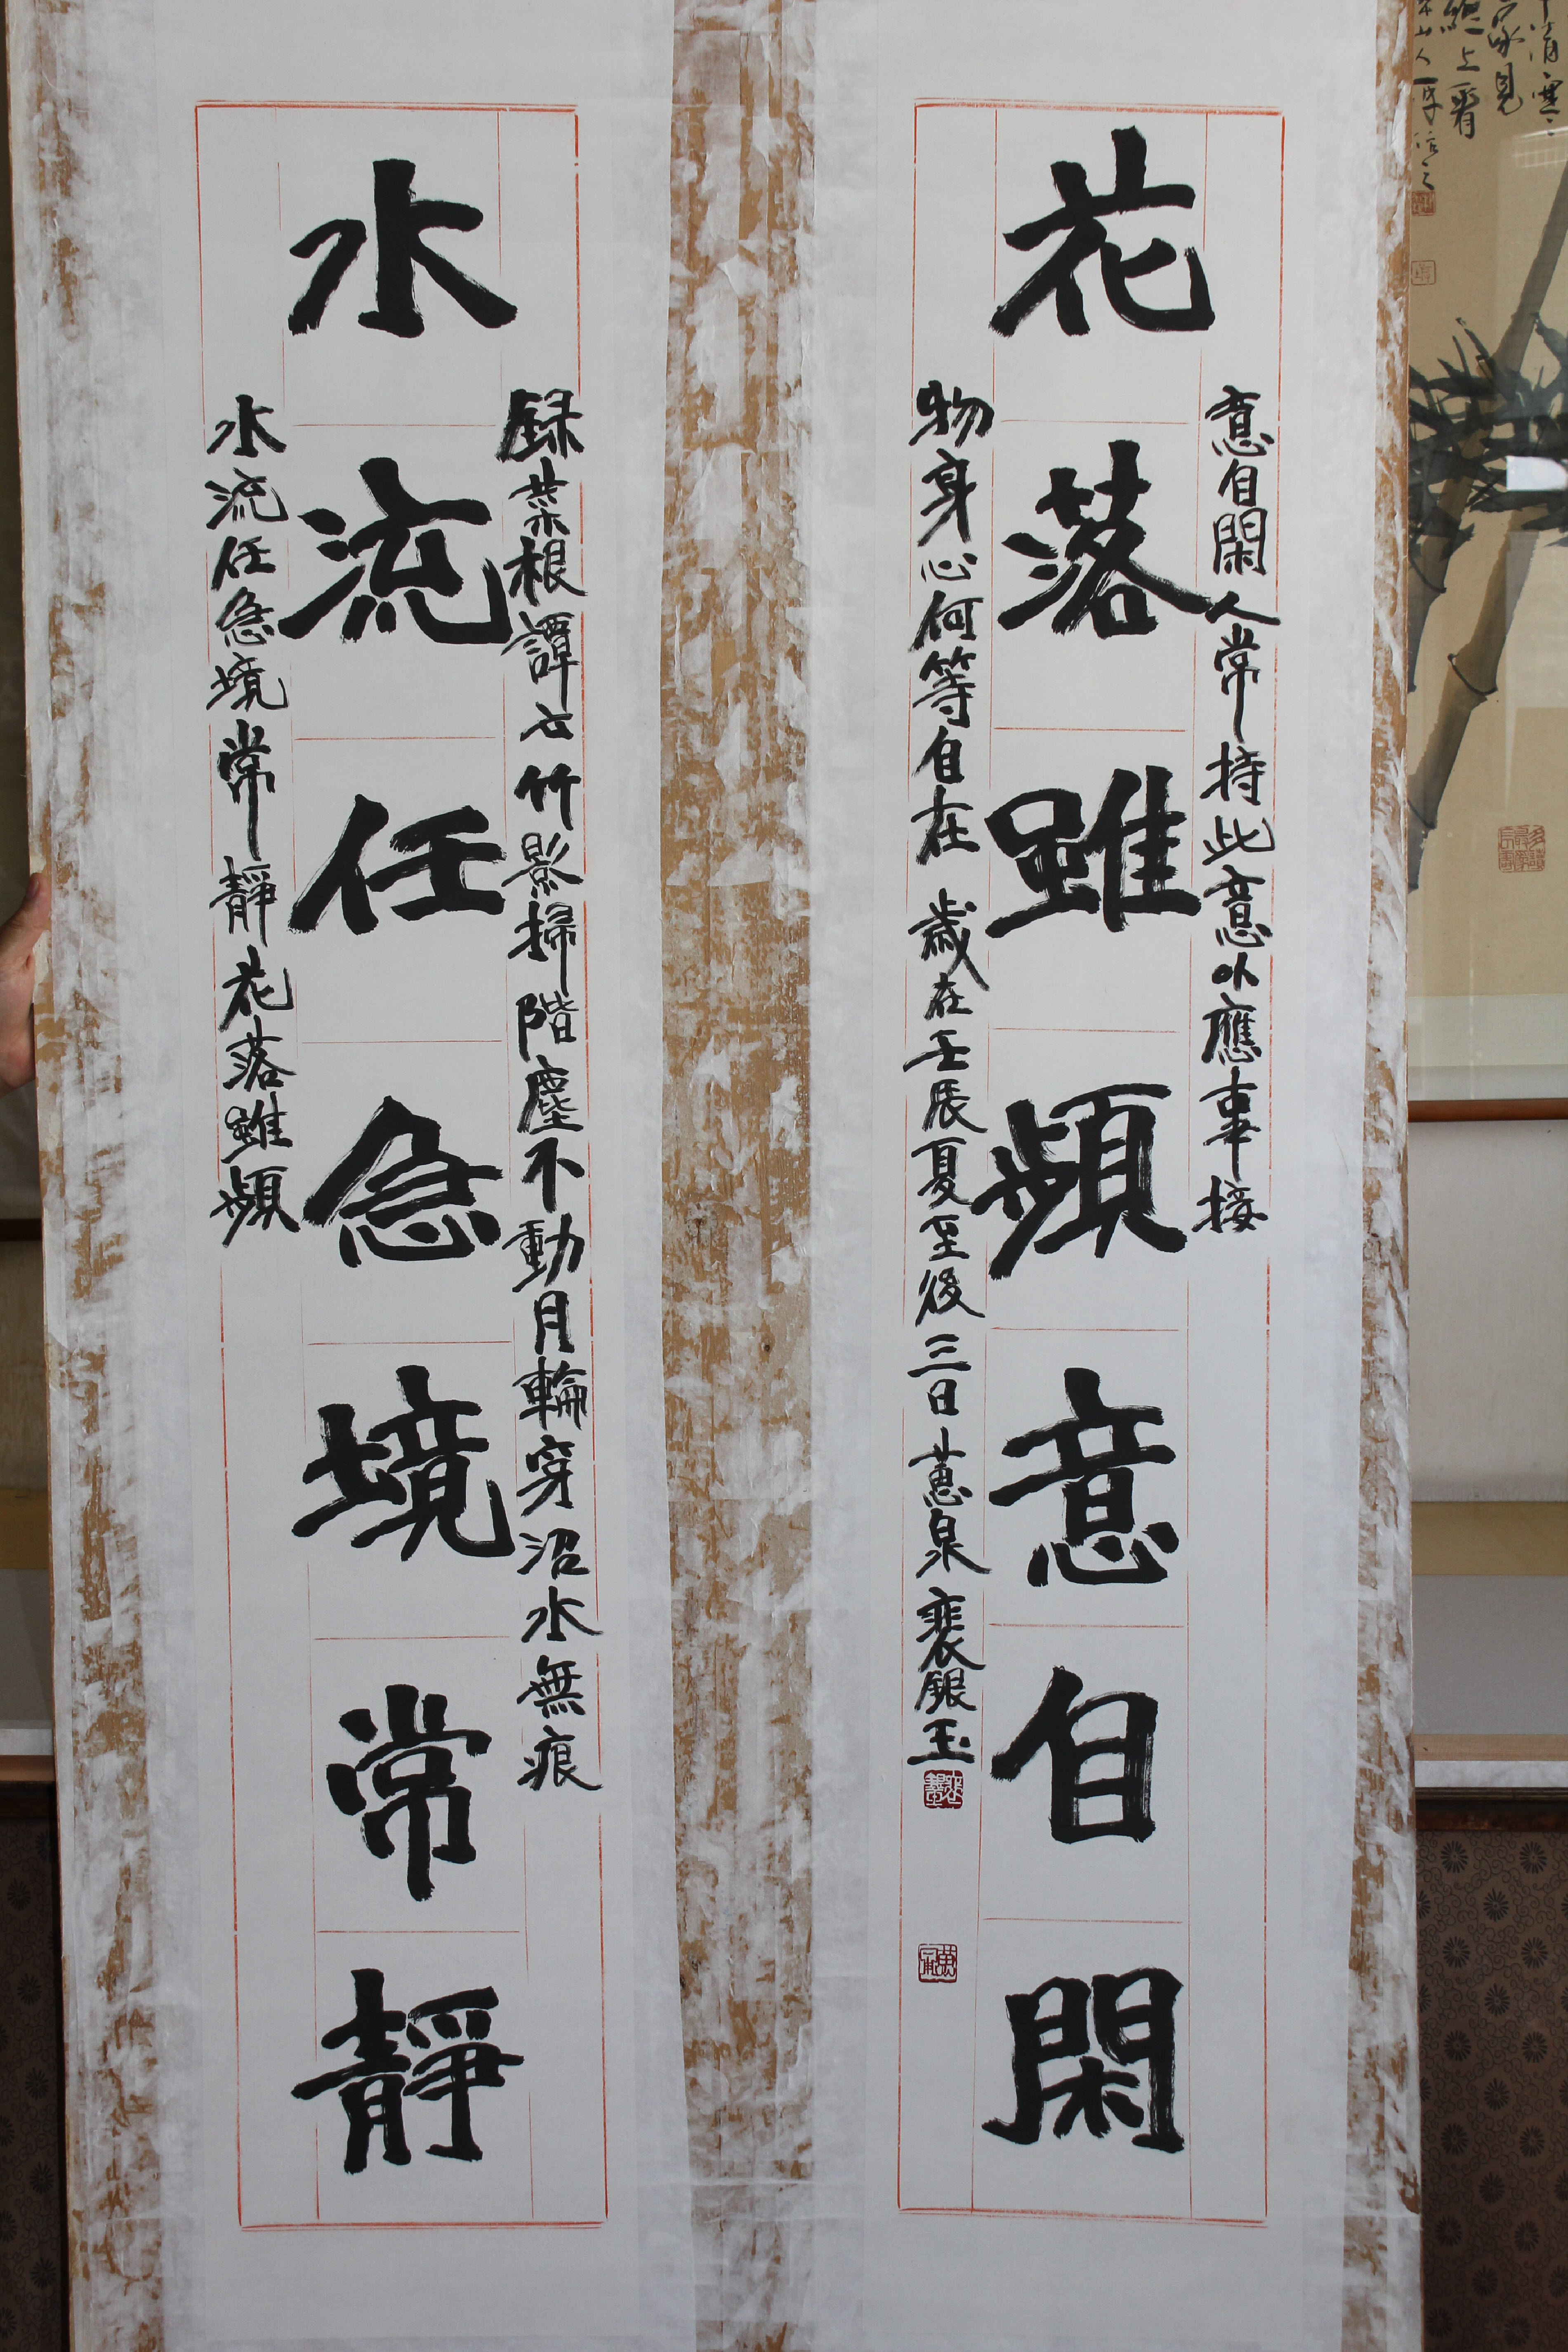 水流任急境常靜
録菜根譚云竹影掃階塵不動月輪穿沼水無痕
水流任急境常靜花落雖頻
花落雖頻意自閑
意自閑人常持此意以應事接
物身心何等自在 歲在壬辰夏至後三日 蕙泉 裵銀玉